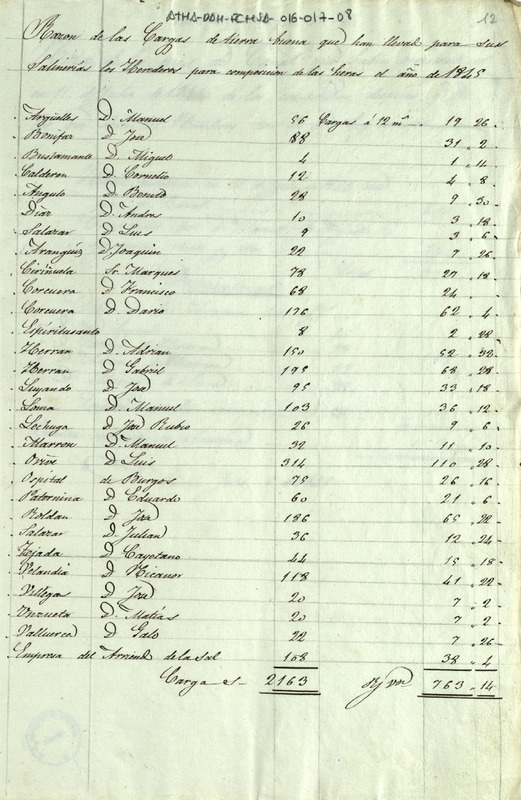 ATHA-DAH-FCHSA-016-017-08
12
Razon de las Cargas de tierra buena que han llevado para sus
Salinerías los Herederos para composicion de las heras el año de 1845
Argüelles D. Manuel 56 Cargas á 12 mrs 19 . 26
Bonifaz D. José 88 31 . 2
Bustamante D. Miguel 4 1 . 14
Calderon D. Cornelio 12 4 . 8
Angulo D. Benito 28 9 . 30
Diaz D. Andres 10 3 . 18
Salazar D. Luis 9 3 . 6
Aranguiz D. Joaquin 22 7 . 26
Ciriñuela Sr. Marques 78 27 . 18
Corcuera D. Francisco 68 24 . -
Corcuera D. Dario 176 62 . 4
Espíritusanto 8 2 . 28
Herran D. Adrian 150 52 . 32
Herran D. Gabriel 195 68 . 28
Luyando D. José 95 33 . 18
Loma D. Manuel 103 36 . 12
Lechuga D. José Rubio 26 9 . 6
Marron D. Manuel 32 11 . 10
Orive D. Luis 314 110 . 28
Ospital de Burgos 75 26 . 16
Paternina D. Eduardo 60 21 . 6
Roldan D. José 186 65 . 22
Salazar D. Julian 36 12 . 24
Tejada D. Cayetano 44 15 . 18
Velandia D. Nicanor 118 41 . 22
Villegas D. José 20 7 . 2
Unzueta D. Matías 20 7 . 2
Valluerca D. Galo 22 7 . 26
Empresa del Arriendo de la sal 108 38 . 4
Cargas 2163 Rs vn 763 . 14